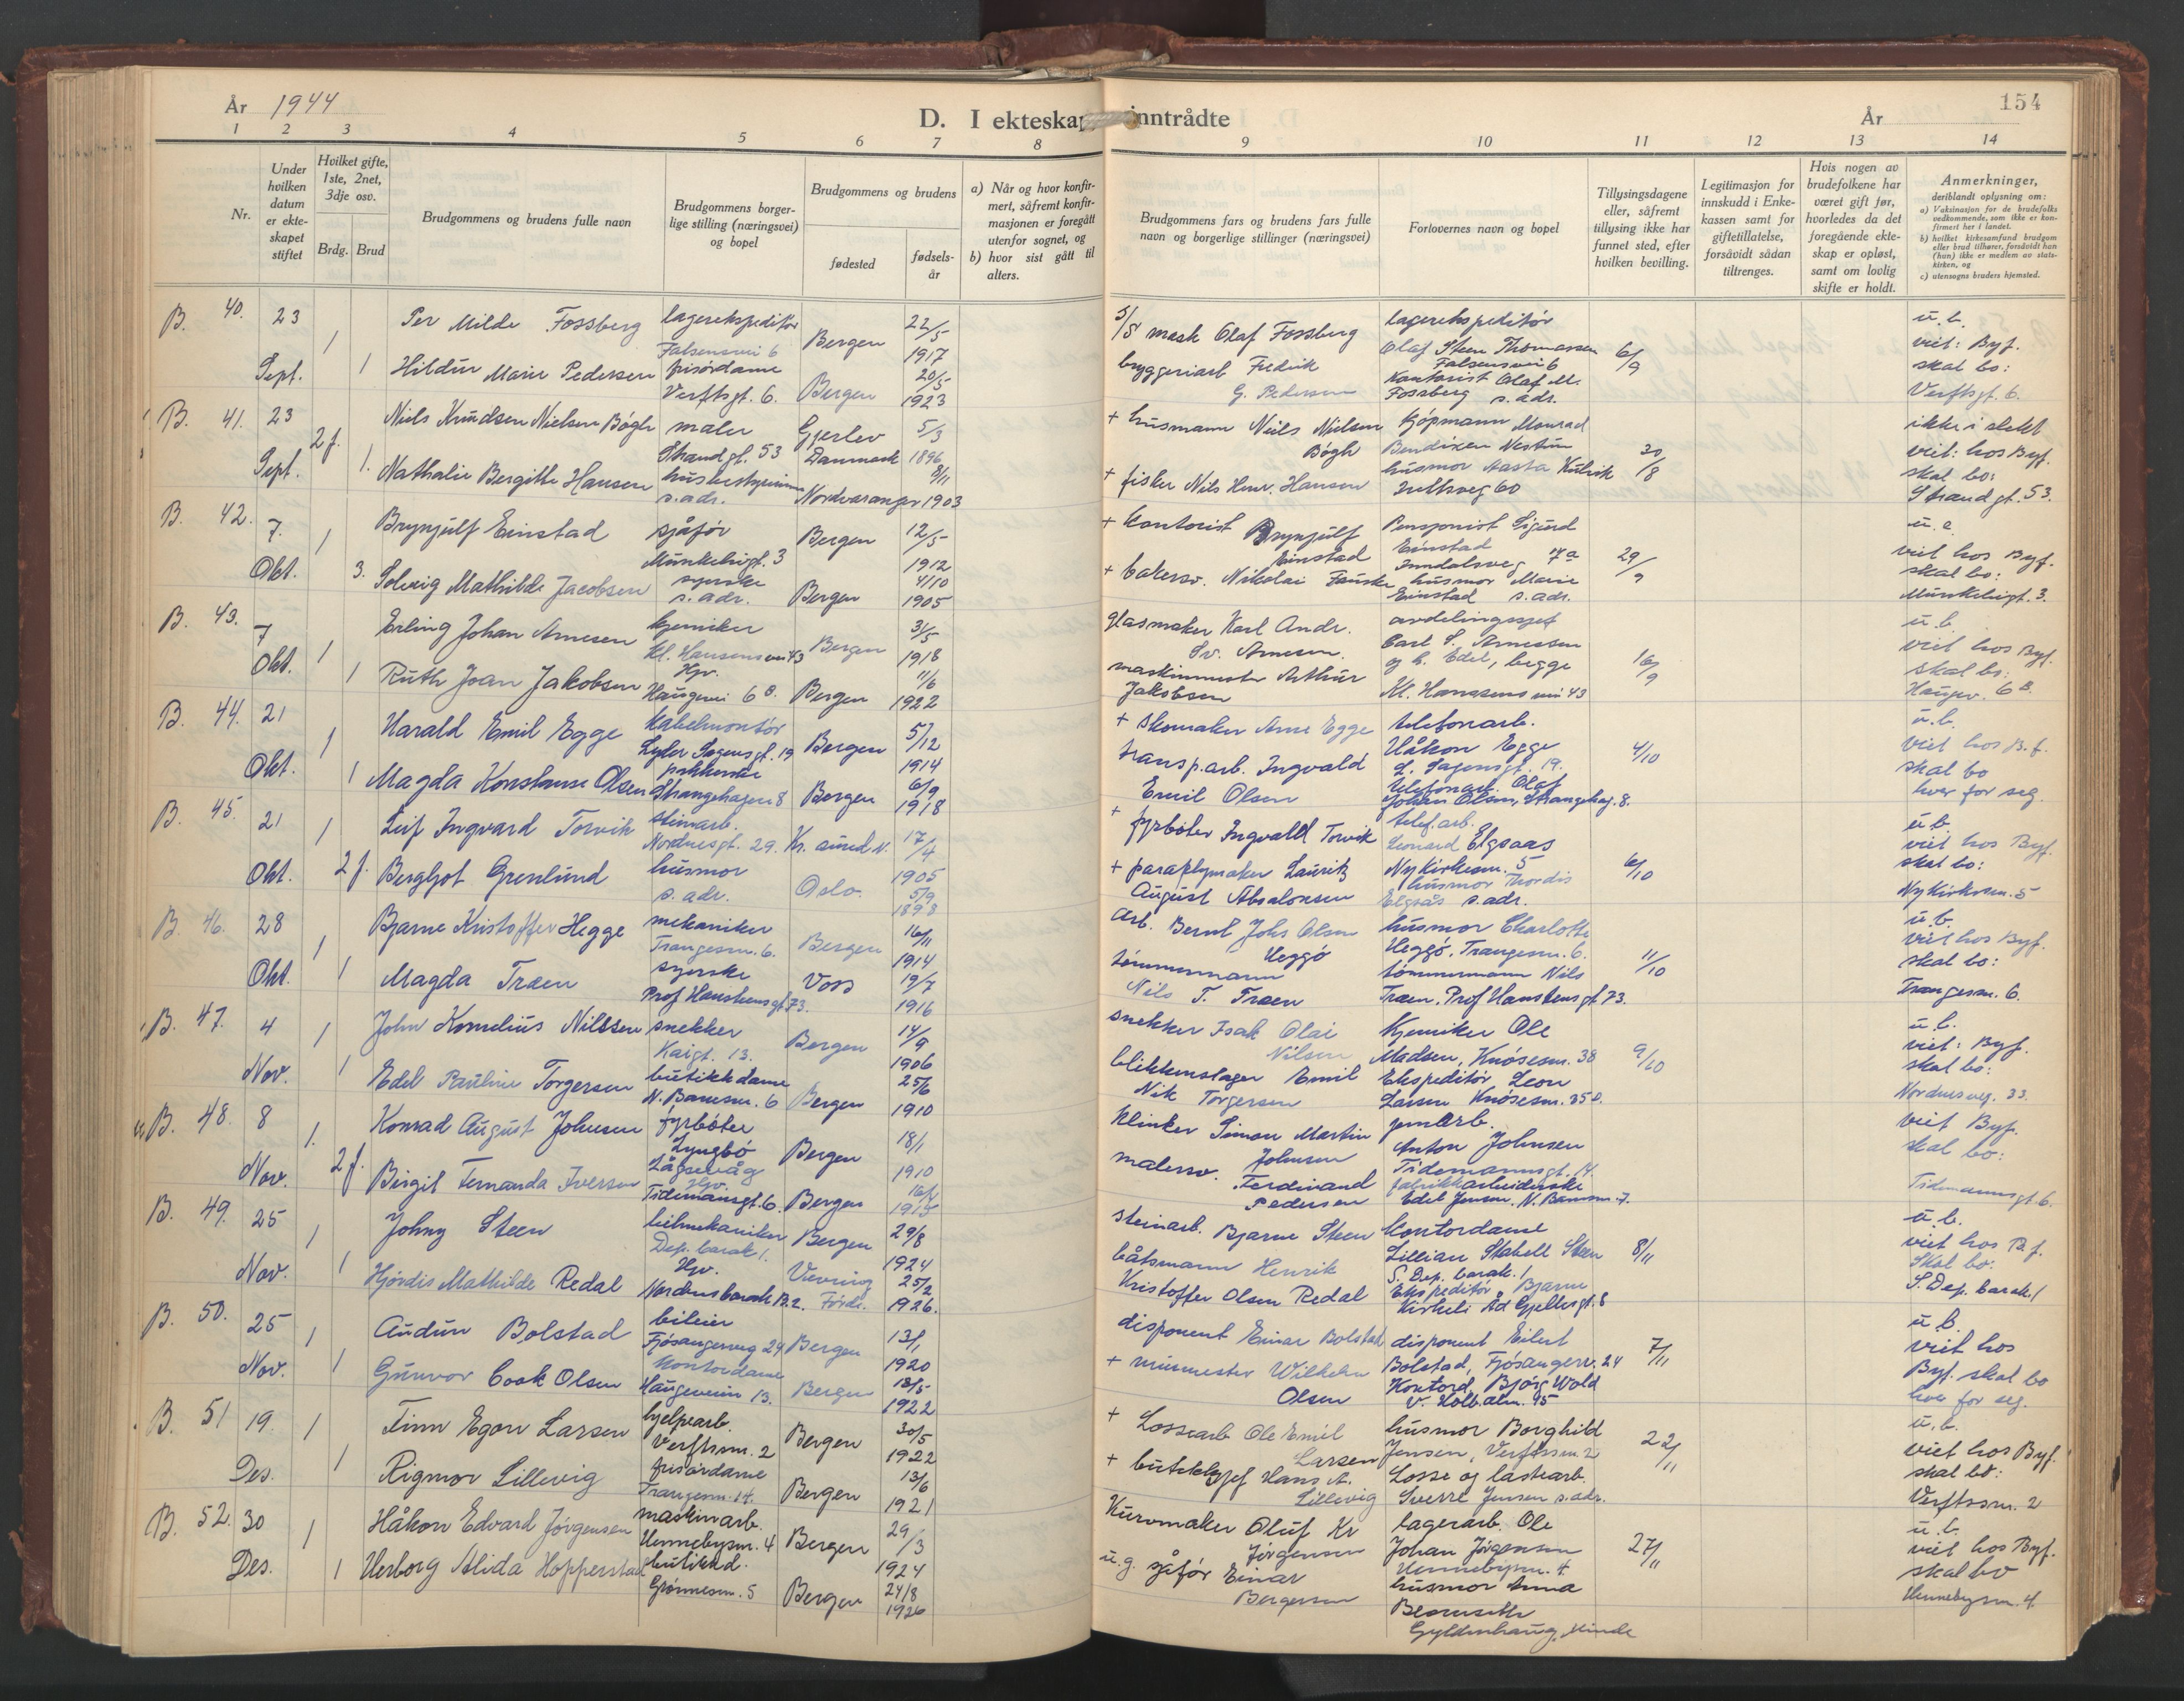 År 1944
D. I ekteskap inntrådte
År
154
1 2 3 4 5 6 7 8 9 10 11 12 13 14
Nr.
Under hvilken datum er ekteskapet stiftet
Hvilket gifte, 1ste, 2net, 3dje osv.
Brdg. Brud
Brudgommens og brudens fulle navn
Brudgommens borgerlige stilling (næringsvei) og bopel
Brudgommens og brudens
fødested
fødselsår
a) Når og hvor konfirmert, såfremt konfirmasjonen er foregått utenfor sognet, og
b) hvor sist gått til alters.
Brudgommens fars og brudens fars fulle navn og borgerlige stillinger (næringsvei)
Forlovernes navn og bopel
Tillysingsdagene eller, såfremt tillysing ikke har funnet sted, efter hvilken bevilling.
Legitimasjon for innskudd i Enkekassen samt for giftetillatelse, forsåvidt sådan tiltrenges.
Hvis nogen av brudefolkene har været gift før, hvorledes da det foregående ekteskap er opløst, samt om lovlig skifte er holdt.
Anmerkninger,
deriblandt oplysning om:
a) Vaksinasjon for de brudefolks vedkommende, som ikke er konfirmert her i landet.
b) hvilket kirkesamfund brudgom eller brud tilhører, forsåvidt han (hun) ikke er medlem av statskirken, og
c) utensogns bruders hjemsted.
B. 40. 23 Sept. 1 1
Per Milde Fossberg
lagerekspeditør
Falsensvei 6
Bergen
22/5 1917
Hildur Marie Pedersen
frisørdame
Verftsgt. 6.
Bergen
20/5 1923
5/8 mask Olaf Fossberg
bryggeriarb Fredrik
G. Pedersen
lagerekspeditør
Olaf Steen Thomassen
Falsensvei 6
Kontorist Olaf M.
Fossberg s. adr.
6/9
u.b.
viet: Byf.
skal bo:
Verftsgt. 6.
B. 41. 23 Sept. 2 f. 1.
Niels Knudsen Nielsen Bøgh
maler
Strandgt. 53
Gjerlev
Danmark
5/3 1896
Nathalie Bergitte Hansen
husbestyrerinne
s. adr.
Nordvaranger
8/11 1903
+ husmann Niels Nielsen
Bøgh
+ fisker Nils Henr. Hansen
Kjøpmann Monrad
Bendixen Nestun
husmor Aasta Kulvik
60
30/8
ikke i slekt
viet: hos Byf.
skal bo:
Strandgt. 53.
B. 42. 7. Okt. 1 3.
Brynjulf Einstad
sjåfør
Munkebugt. 3
Bergen
12/5 1912
Solveig Mathilde Jacobsen
syerske
s. adr.
Bergen
4/10 1905
+ kontorist Brynjulf
Einstad
+ bakersv. Nikolai Fauske
Pensjonist Sigurd
Einstad
Inndalsveg 7a
husmor Marie
Einstad s. adr.
29/9
viet hos Byf.
skal bo:
Munkebugt. 3.
B. 43. 7 Okt. 1 1
Erling Johan Arnesen
kjemiker
Kl. Hansens vei 43
Bergen
31/5 1918
Ruth Joan Jakobsen
Hjv.
Haugevei 6 B.
Bergen
11/6 1922
glasmaker Karl Andr.
Sv. Arnesen.
maskinmester Arthur
Jakobsen
avdelingssjef
Carl S. Arnessen
og h. Edel, begge
Kl. Hanssens vei 43
16/9
u.b.
viet hos Byf.
skal bo:
Haugev. 6 B.
B. 44. 21 Okt. 1 1
Harald Emil Egge
kabelmontør
Lyder Sagensgt. 19
Bergen
5/12 1914
Magda Konstanse Olsen
pakkerske
Strangehagen 8
Bergen
6/9 1918
+ skomaker Arne Egge
transp.arb. Ingvald
Emil Olsen
telefonarb.
Håkon Egge
L. Sagensgt. 19.
telefonarb. Olaf
Johan Olsen, Strangehag. 8.
4/10
u.b.
viet hos B.f.
skal bo
hver for seg.
B. 45. 21 Okt. 1 2 f.
Leif Ingvard Torvik
steinarb.
Nordnesgt. 29.
Kr. sund N.
17/4 1905
Bergljot Grenlund
husmor
s. adr.
Oslo.
5/9 1898
+ fyrbøter Ingvald Torvik
+ paraplymaker Lauritz
August Absalonsen
telef.arb.
Leonard Elgsaas
Nykirkesm. 5
husmor Thordis
Elgsås s. adr.
6/10
u.b.
viet hos Byf.
skal bo:
Nykirkesm. 5
B. 46. 28 Okt. 1 1
Bjarne Kristoffer Hegge
mekaniker
Trangesm. 6.
Bergen
16/11 1914
Magda Træen
syerske
Prof Hansteens gt. 73.
Voss
19/7 1916
Arb. Bernt Johs Olsen
Heggø
tømmermann
Nils T. Træen
husmor Charlotte
Heggø, Trangesm. 6.
tømmermann Nils
Træen, Prof Hansteensgt. 73.
11/10
u.b.
viet hos Byf.
skal bo:
Trangesm. 6.
B. 47. 4 Nov. 1 1
John Kornelius Nilssen
snekker
Kaigt. 13.
Bergen
14/9 1906
Edel Pauline Torgersen
butikkdame
N. Banesm. 6
Bergen
25/6 1910
snekker Isak Olai
Nilsen
blikkenslager Emil
Nik Torgersen
Kjemiker Ole
Madsen, Knøsesm. 38
Ekspeditør Leon
Larsen Knøsesm. 35 B.
9/10
u.b.
viet: Byf.
skal bo:
Nordnesveg. 33.
B. 48. 8 Nov. 1. 2 f.
Konrad August Johnsen
fyrbøter
Lyngbø
Laksevåg
Bergen
18/1 1910
Birgit Fernanda Iversen
Hjv.
Tidemansgt. 6.
Bergen
Klinker Simon Martin
Johnsen
malersv. Ferdinand
Pedersen
jernarb.
Anton Johnsen
Tidemannsgt. 14.
fabrikkarbeiderske
Edel Jensen, N. Banesm. 7.
viet Byf.
skal bo:
Tidemannsgt 6.
B. 49. 25 Nov. 1 1
Johny Steen
bilmekaniker
Dep. barak 1.
Bergen
29/8 1924
Hjørdis Mathilde Redal
Hjv.
Nordnesbarak B. 2.
Vevring
Førde.
25/2 1926.
steinarb. Bjarne Steen
båtsmann Henrik
Kristoffer Olsen Redal
Kontordame
Lillian Stabell Steen
S. Dep. barak. 1
Ekspeditør Bjarne
Kirkeli Ad Gjellesgt. 8
8/11
u.b.
viet hos B.f.
Skal bo:
S. Dep. barak 1
B. 50. 25 Nov. 1 1
Audun Bolstad
bileier
Fjøsangerveg 24
Bergen
13/1 1920
Gunvor Cook Olsen
Kontordame
Haugeveien 13.
Bergen
18/5 1922
disponent Einar Bolstad
+ murmester Wilhelm
Olsen
disponent Eilert
Bolstad, Fjøsangerv. 24
Kontord. Bjørg Wold
V. Holb. alm. 95
7/11
u.b.
viet hos
Byf. skal bo
hver for seg.
B. 51 19. Des. 1 1
Finn Egon Larsen
hjelpearb.
Verftssm. 2
Bergen
30/5 1922
Rigmor Lillevig
frisørdame
Trangesm. 14.
Bergen
13/6 1921
+ Lossearb Ole Emil
Larsen
+ butikksjef Hans A.
Lillevig
husmor Borghild
Jensen, Verftssm. 2
Losse og lastearb.
Sverre Jensen s. adr.
22/11
u.b.
viet hos Byf.
skal bo:
Verftssm. 2
B. 52. 30 Des. 1 1
Håkon Edvard Jørgensen
maskinarb.
Hennebysm. 4
Bergen
29/3 1924
Herborg Alida Hopperstad
butikkd.
Grønnesm. 5
Bergen
24/8 1926
Kurvmaker Oluf Kr
Jørgensen
u.g. sjåfør Einar
Bergersen
lagerarb. Ole
Johan Jørgensen
Hennebysm. 4.
husmor Anna
Gyldenhaug, Minde
27/11
u.b.
viet hos Byf.
skal bo
Hennebysm. 4.